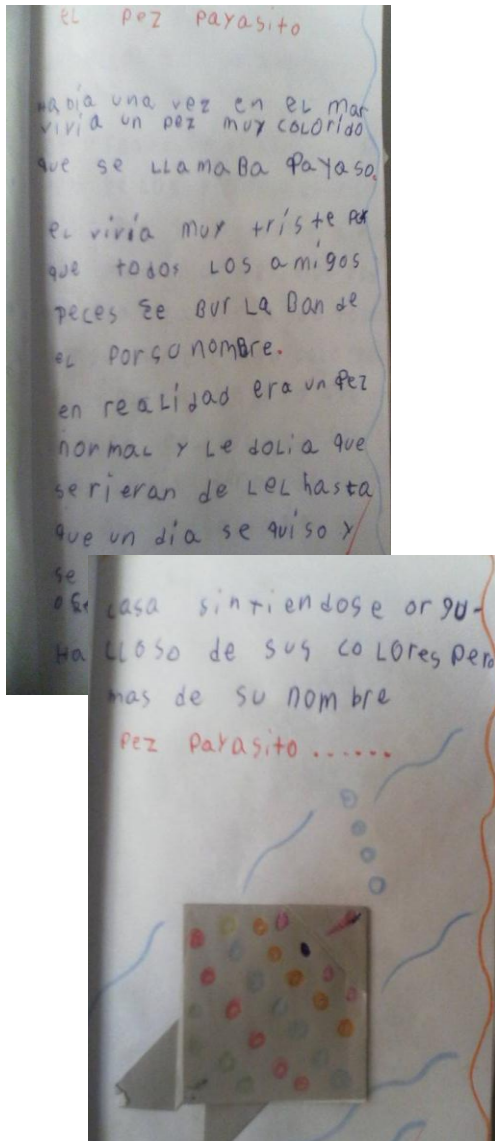 EL PEZ PAYASITO
Había una vez en el mar
vivía un pez muy colorido
que se llamaba Payaso.
el vivía muy triste por
que todos los amigos
peces se burlaban de
el por su nombre.
en realidad era un pez
normal y le dolia que
se rieran de lel hasta
que un día se quiso y
se
casa sintiendose orgu-
lloso de sus colores pero
mas de su nombre
Pez Payasito ......